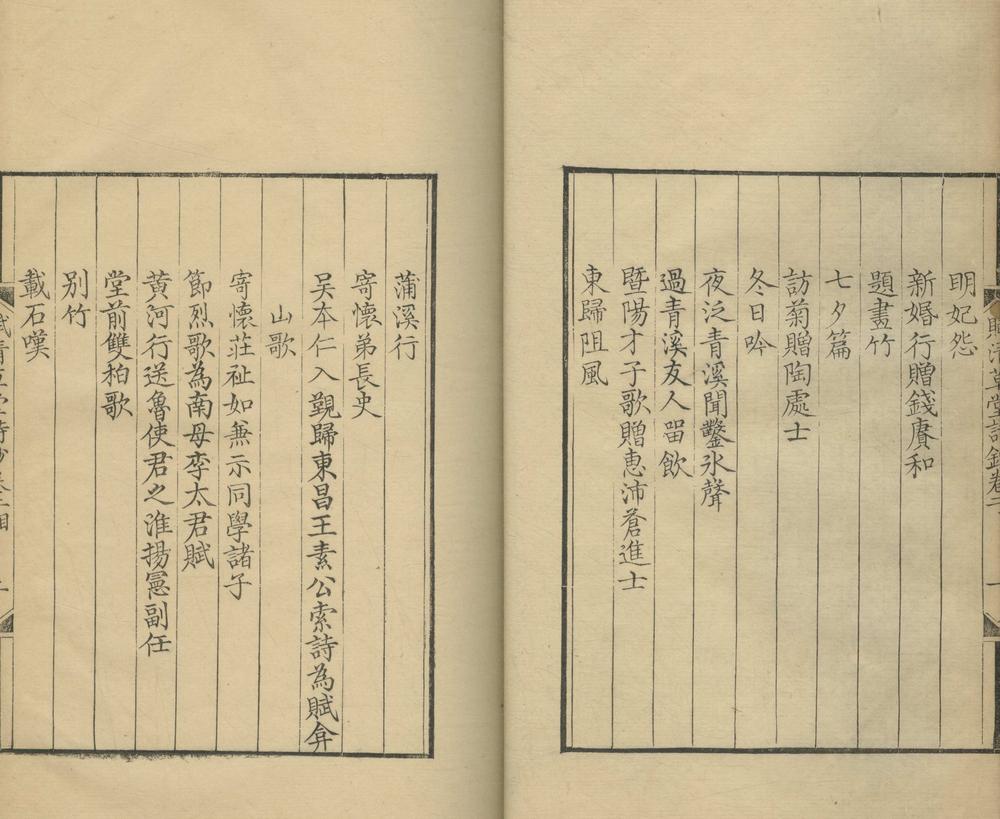 明妃怨
新婚行贈錢賡和
題畫竹
七夕篇
訪菊贈陶處士
冬日吟
夜泛青溪聞鑿氷聲
過青溪友人畱飲
暨陽才子歌贈惠沛蒼進士
東歸阻風
蒲溪行
寄懷弟長史
吴本仁入覲歸東昌王素公索詩為賦弇
山歌
寄懷莊祉如兼示同學諸子
節烈歌為南母李太君賦
黄河行送魯使君之淮揚憲副任
堂前雙桕歌
别竹
載石嘆